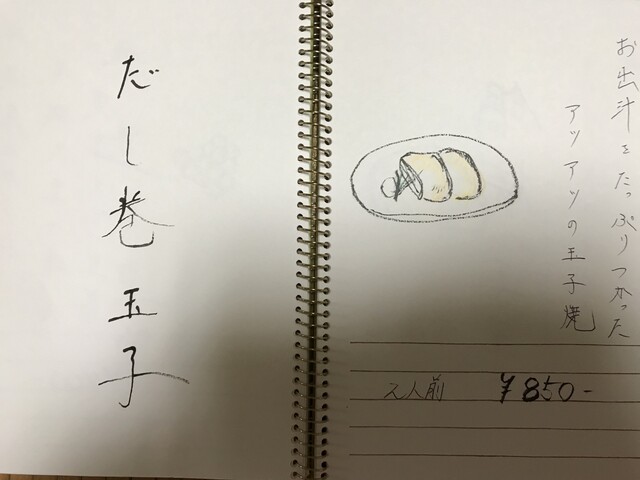 だし巻玉子
お出汁をたっぷりつかった
アツアツの玉子焼
2人前 ¥850-